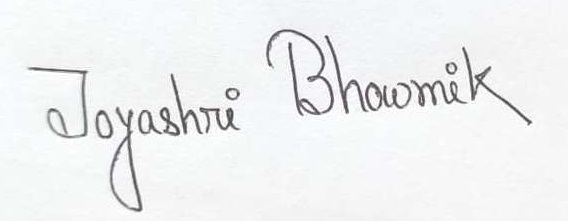 Joyashri Bhowmik